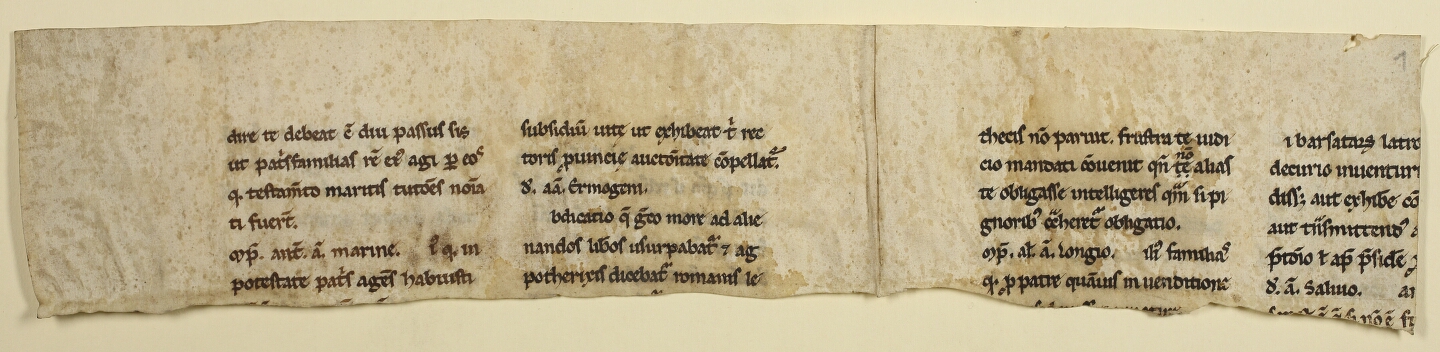 dire te debeat ē diu passus sis
ut pat̄sfamilias rē eiꝰ agi ꝑ eos
q. testam̄to maritis tutōes noīa
ti fuer̄t.
Imp̄. ant̄. ā. marine. q. in
potestate pat̄s agens habuisti
subsidiū uitę ut exhibeat t̄ rec
toris ꝓuincię auctoritate cōpellat᷑.
aā. Ermogeni.
bdicatio q̄ gͣeco more ad alie
nandos lib̄os usurpabat᷑ ⁊ ag
potherixis dicebat᷑ romanis le
thecis nō paruit. frustra te iudi
cio mandati cōuenit qm̄ nō te alias
te obligasse intelligeres qm̄ si pi
gnoribꝰ hereret᷑ obligatio.
Imp̄. al. ā. Longio. familias
q. ꝓ patre quāuis in uenditione
i barsatarū latro
decurio inuentur
aut exhibe cō
aut t͂nsmittendꝰ a
p̄torio ł ap̄ p̄side
ā. Saluio.